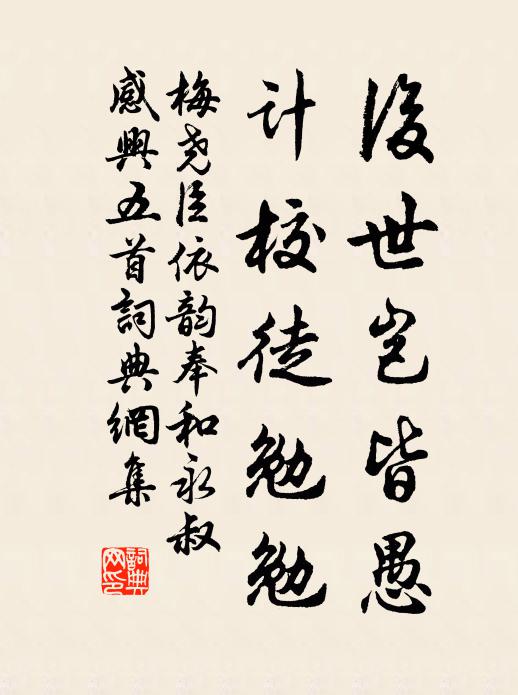 後世岂皆愚
计校徒勉勉
梅尧臣依韵奉和永叔
感興五首詞典網集
詞典网印